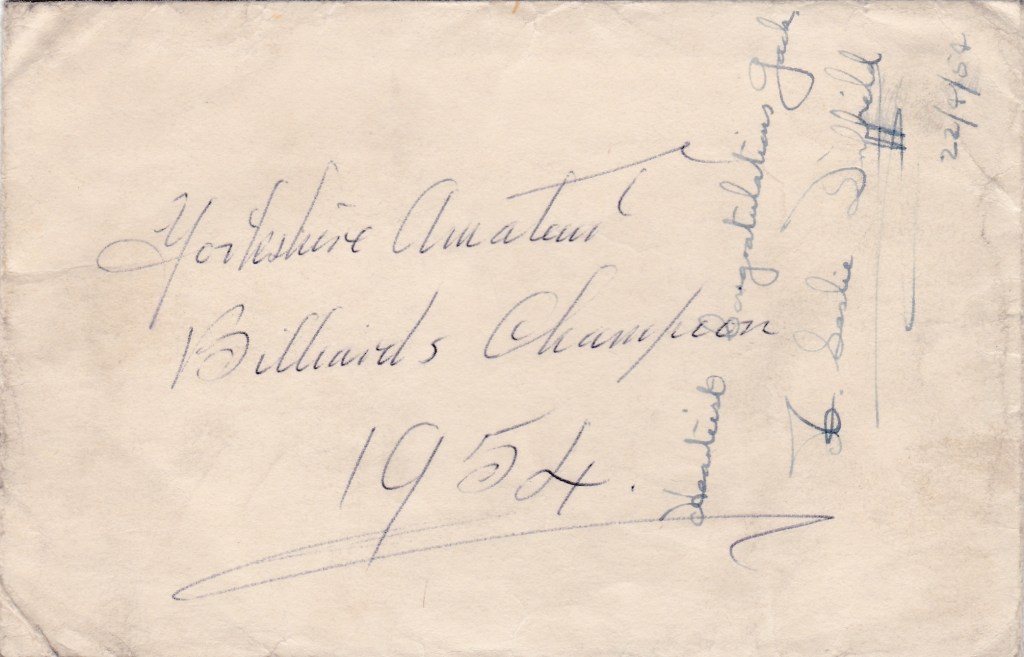 Yorkshire Amateur
Billiards Champion
1954.
Heartiest Congratulations Jack,
Leslie Driffield
22/4/54